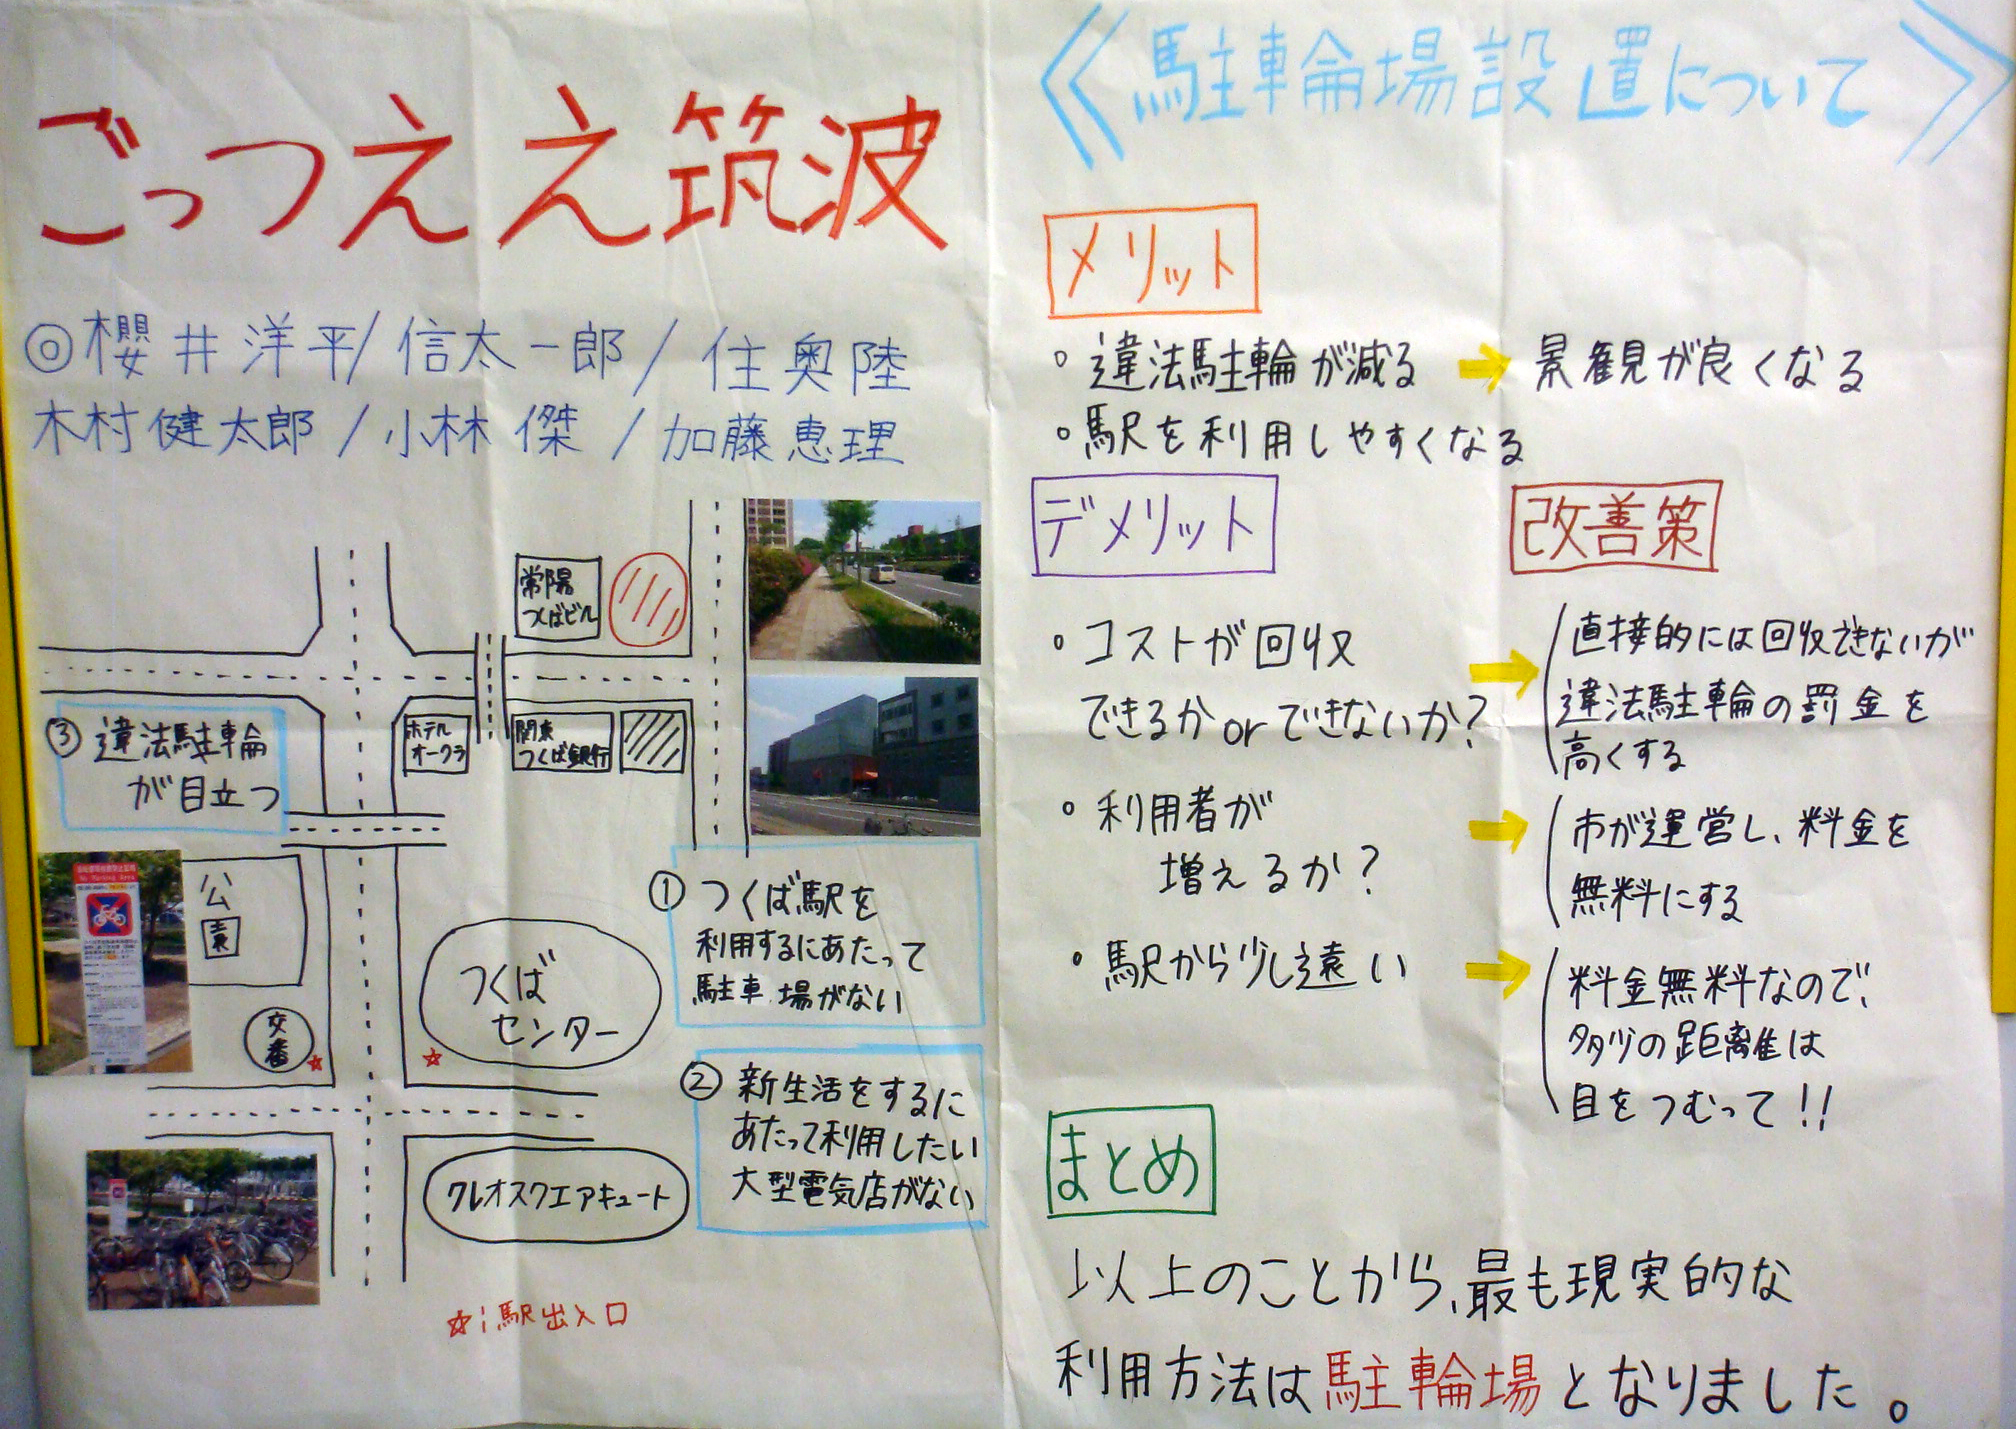 ごっつええ筑波
◎櫻井洋平/信太一郎/住奥陸
木村健太郎/小林傑/加藤恵理
常陽
つくばビル
ホテル
オークラ
関東
つくば銀行
③違法駐輪
が目立つ
公
園
交
番
つくば
センター
クレオスクエアキュート
①つくば駅を
利用するにあたって
駐車場がない
②新生活をするに
あたって利用したい
大型電気店がない
☆;駅出入口
《駐車輪場設置について》
メリット
・違法駐輪が減る→景観が良くなる
・駅を利用しやすくなる
デメリット
改善策
・コストが回収
できるかorできないか?
→直接的には回収できないが
違法駐輪の罰金を
高くする
・利用者が
増えるか?
→市が運営し、料金を
無料にする
・駅から少し遠い
→料金無料なので、
多少の距離は
目をつむって!!
まとめ
以上のことから、最も現実的な
利用方法は駐輪場となりました。